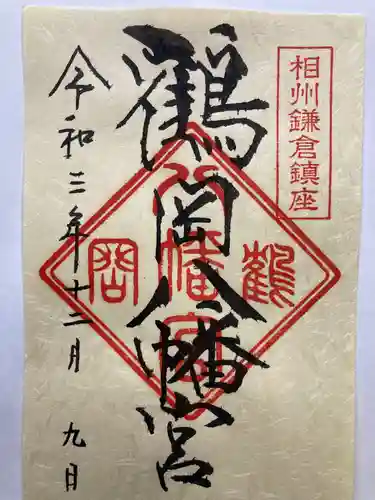 相州鎌倉鎮座
鶴岡八幡宮
鶴岡
八幡宮
令和三年十二月九日